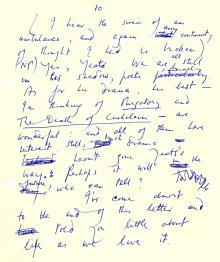 10
I hear the siren of an
ambulance; and again any continuity
of thought I had is broken
Yes, Yeats. We are still
in his shadow, poets
As for his drama, his best –
I'm thinking of Purgatory and
The Death of Cuchulain – are
wonderful: and all of them have
interest still, drama
hasn't gone Yeats's
way. Perhaps it will
who can tell?
I've come almost
to the end of this letter and
told you little about
life as we live it.